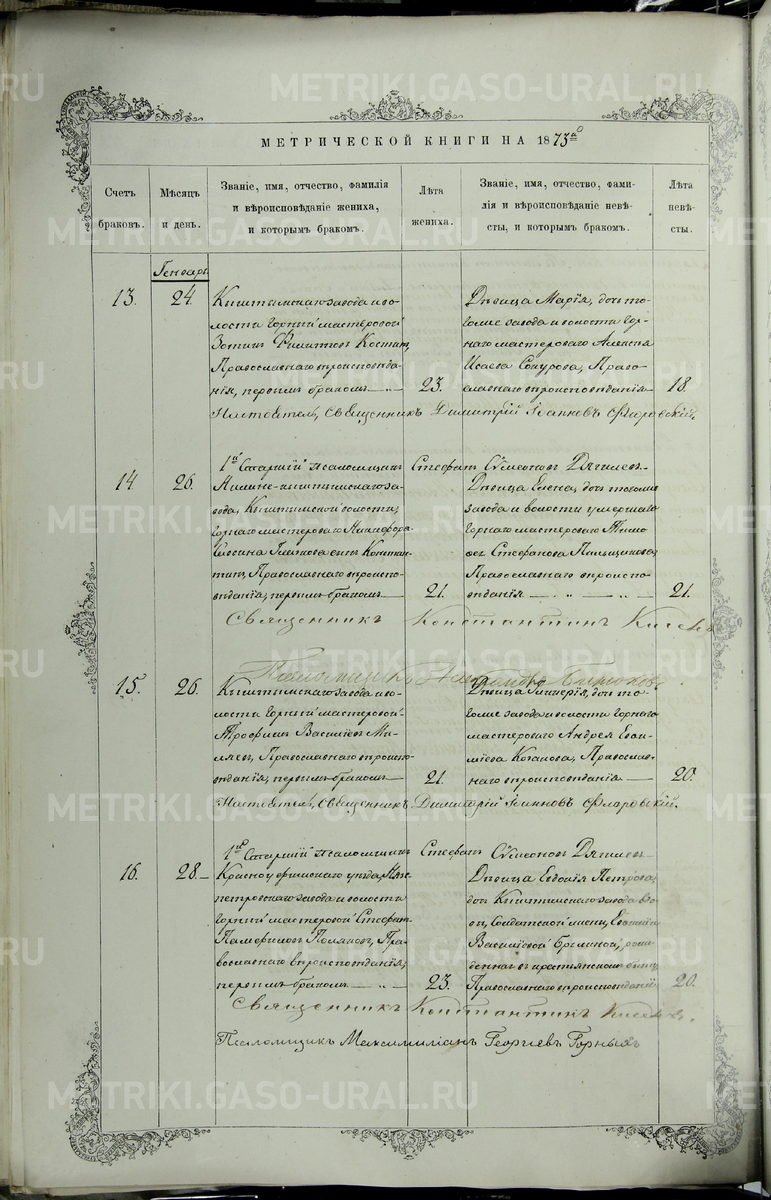 МЕТРИЧЕСКОЙ КНИГИ НА 1873й
Счетъ браковъ.
Мѣсяцъ и день.
Званіе, имя, отчество, фамилія
и вѣроисповѣданіе жениха,
и которымъ бракомъ.
Лѣта
жениха.
Званіе, имя, отчество, фами-
лія и вѣроисповѣданіе невѣ-
сты, и которымъ бракомъ.
Лѣта
невѣ-
сты.
Генварь
13.
24.
Кыштымскаго завода и во-
лости горный мастеровой
Зотикъ Филитовъ Костинъ,
Православнаго вѣроисповѣда-
нія, первымъ бракомъ
23.
Дѣвица Марія, дочь то-
гоже завода и волости гор-
наго мастероваго Алексѣя
Исаева Сокурова, Право-
славнаго вѣроисповѣданія
18.
Настоятель, Священникъ Димитрій Іоанновъ Флоровскій.
1й Старшій псаломщикъ Стефанъ Сѵмеоновъ Дягилевъ
14.
26.
Нижне-кыштымскаго за-
вода, Кыштымской волости,
горнаго мастероваго Никифора
сынъ Констан-
тинъ, Православнаго вѣроиспо-
вѣданія, первымъ бракомъ
21.
Дѣвица Елена, дочь тогоже
завода и волости умершаго
горнаго мастероваго Тимо-
фея Стефанова Пильщикова,
Православнаго вѣроиспо-
вѣданія
21.
Священникъ Константинъ
Псаломщикъ
15.
26.
Кыштымскаго завода и во-
лости горный мастеровой
Трофимъ Васильевъ Ми-
ляевъ, Православнаго вѣроиспо-
вѣданія, первымъ бракомъ
21.
Дѣвица Гликерія, дочь то-
гоже завода и волости горнаго
мастероваго Андрея Евѳи-
міева Козакова, Православ-
наго вѣроисповѣданія
20.
Настоятель, Священникъ Димитрій Іоанновъ Флоровскій.
1й Старшій псаломщикъ Стефанъ Сѵмеоновъ Дягилевъ
16.
28.
Красноуфимскаго уѣзда Ниж-
петровскаго завода и волости
горный мастеровой Стефанъ
Памфиловъ Поляковъ, Пра-
вославнаго вѣроисповѣданія,
первымъ бракомъ
23.
Дѣвица Евдокія Петрова,
дочь Кыштымскаго завода вдо-
вы, Солдатской жены, Евдокіи
Васильевой Ереминой, рож-
денная въ крестьянскомъ бытѣ
Православнаго вѣроисповѣданія
20.
Священникъ Константинъ
Псаломщикъ Максимиліанъ Георгіевъ Горныхъ
METRIKI.GASO-URAL.RU